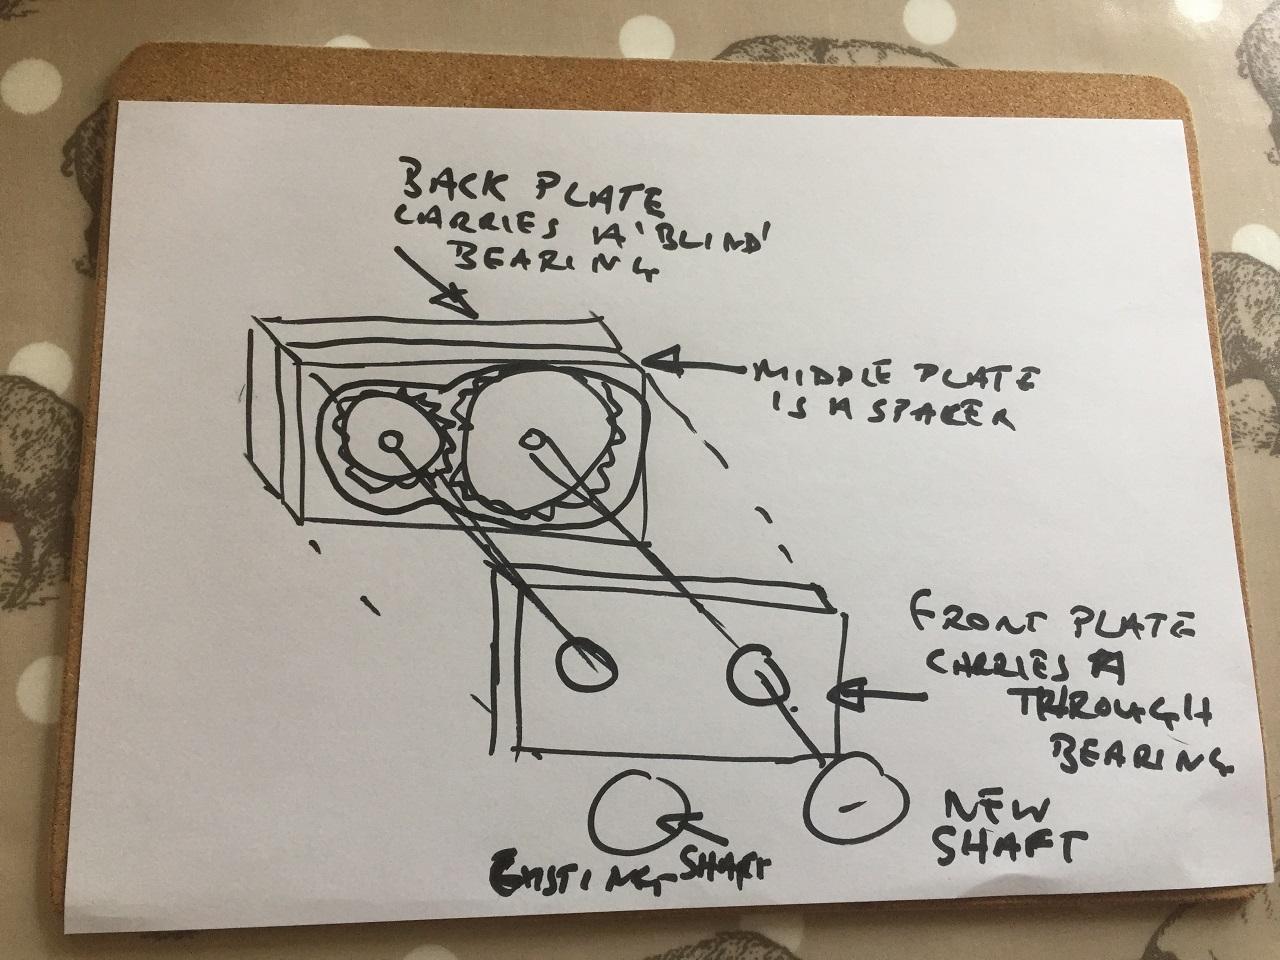 BACK PLATE
CARRIES A 'BLIND'
BEARING
MIDDLE PLATE
IS A SPACER
FRONT PLATE
CARRIES A
THROUGH
BEARING
NEW
SHAFT
EXISTING SHAFT